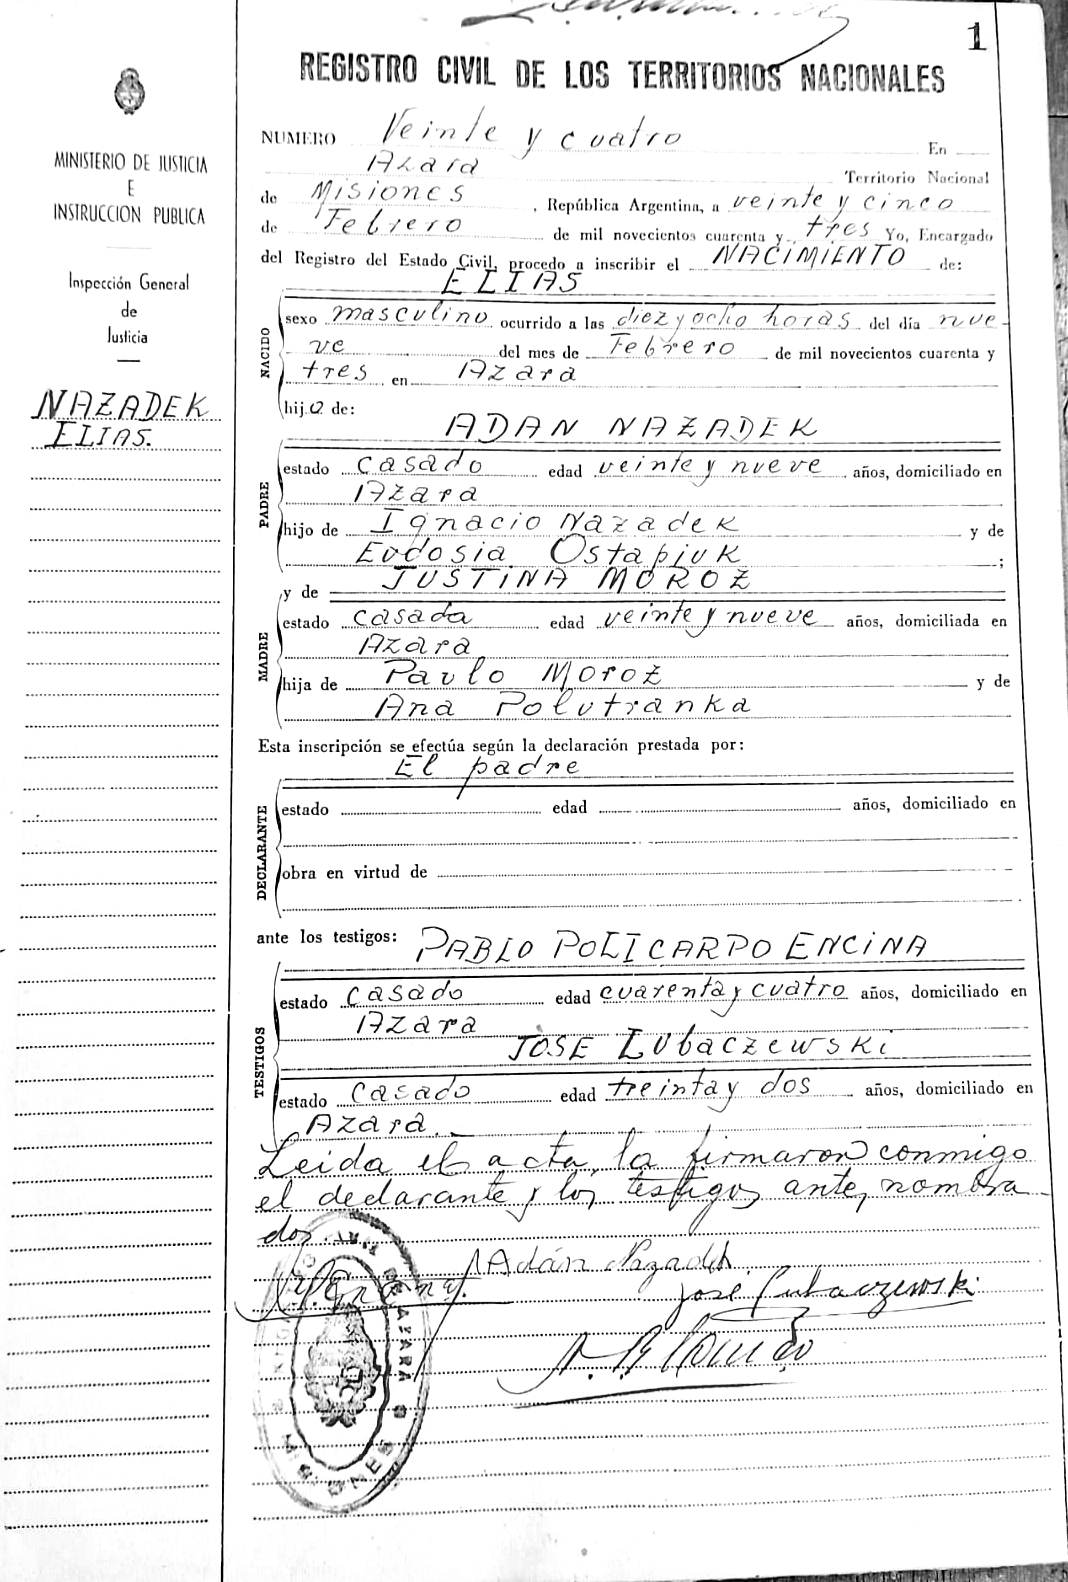 1
REGISTRO CIVIL DE LOS TERRITORIOS NACIONALES
MINISTERIO DE JUSTICIA
E
INSTRUCCION PUBLICA
Inspección General
de
Justicia
NAZADEK
ELIAS.
NUMERO Veinte y cuatro En
Azara Territorio Nacional
de Misiones, República Argentina, a veinte y cinco
de Febrero de mil novecientos cuarenta y tres Yo, Encargado
del Registro del Estado Civil, procedo a inscribir el NACIMIENTO de:
ELIAS
NACIDO
sexo masculino ocurrido a las diez y ocho horas del día nue-
ve del mes de Febrero de mil novecientos cuarenta y
tres en Azara
hijo de:
ADAN NAZADEK
PADRE
estado casado edad veinte y nueve años, domiciliado en
Azara
hijo de Ignacio Nazadek y de
Eudosia Ostapiuk;
y de JUSTINA MOROZ
MADRE
estado casada edad veinte y nueve años, domiciliada en
Azara
hija de Pavlo Moroz y de
Ana Polutranka
Esta inscripción se efectúa según la declaración prestada por:
El padre
DECLARANTE
estado edad años, domiciliado en
obra en virtud de
ante los testigos: PABLO POLICARPO ENCINA
TESTIGOS
estado casado edad cuarenta y cuatro años, domiciliado en
Azara
JOSE Lubaczewski
estado casado edad treinta y dos años, domiciliado en
Azara.
Leida el acta, la firmaron conmigo
el declarante y los testigos ante, nombra-
dos.
Adán Nazadek
José Lubaczewski